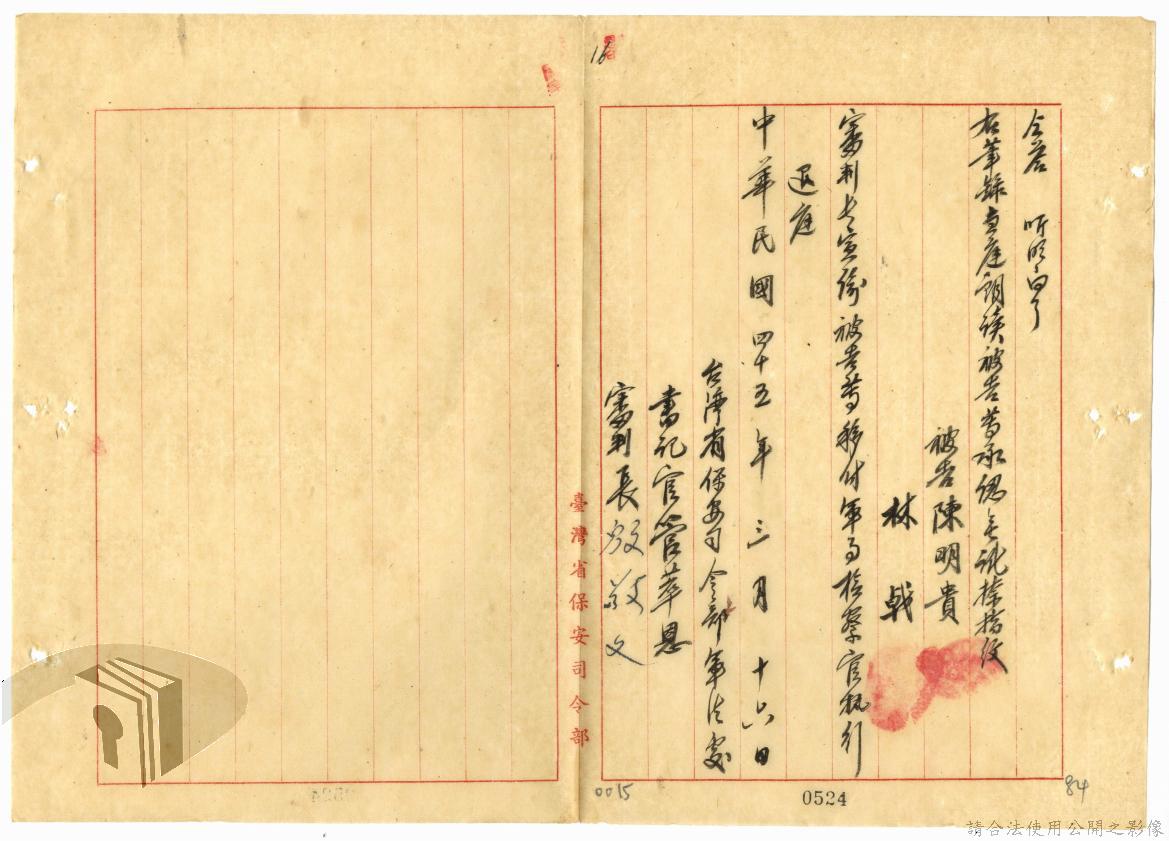 仝答　听明白了
右筆錄當庭朗讀被告等承認無訛捺指紋
被告陳明貴
林戟
審判長宣諭被告等移付軍事檢察官執行
退庭
中華民國四十五年三月十六日
台灣省保安司令部軍法處
書記官管萃恩
審判長殷敬文
臺灣省保安司令部
16
0015
0524
84
請合法使用公開之影像